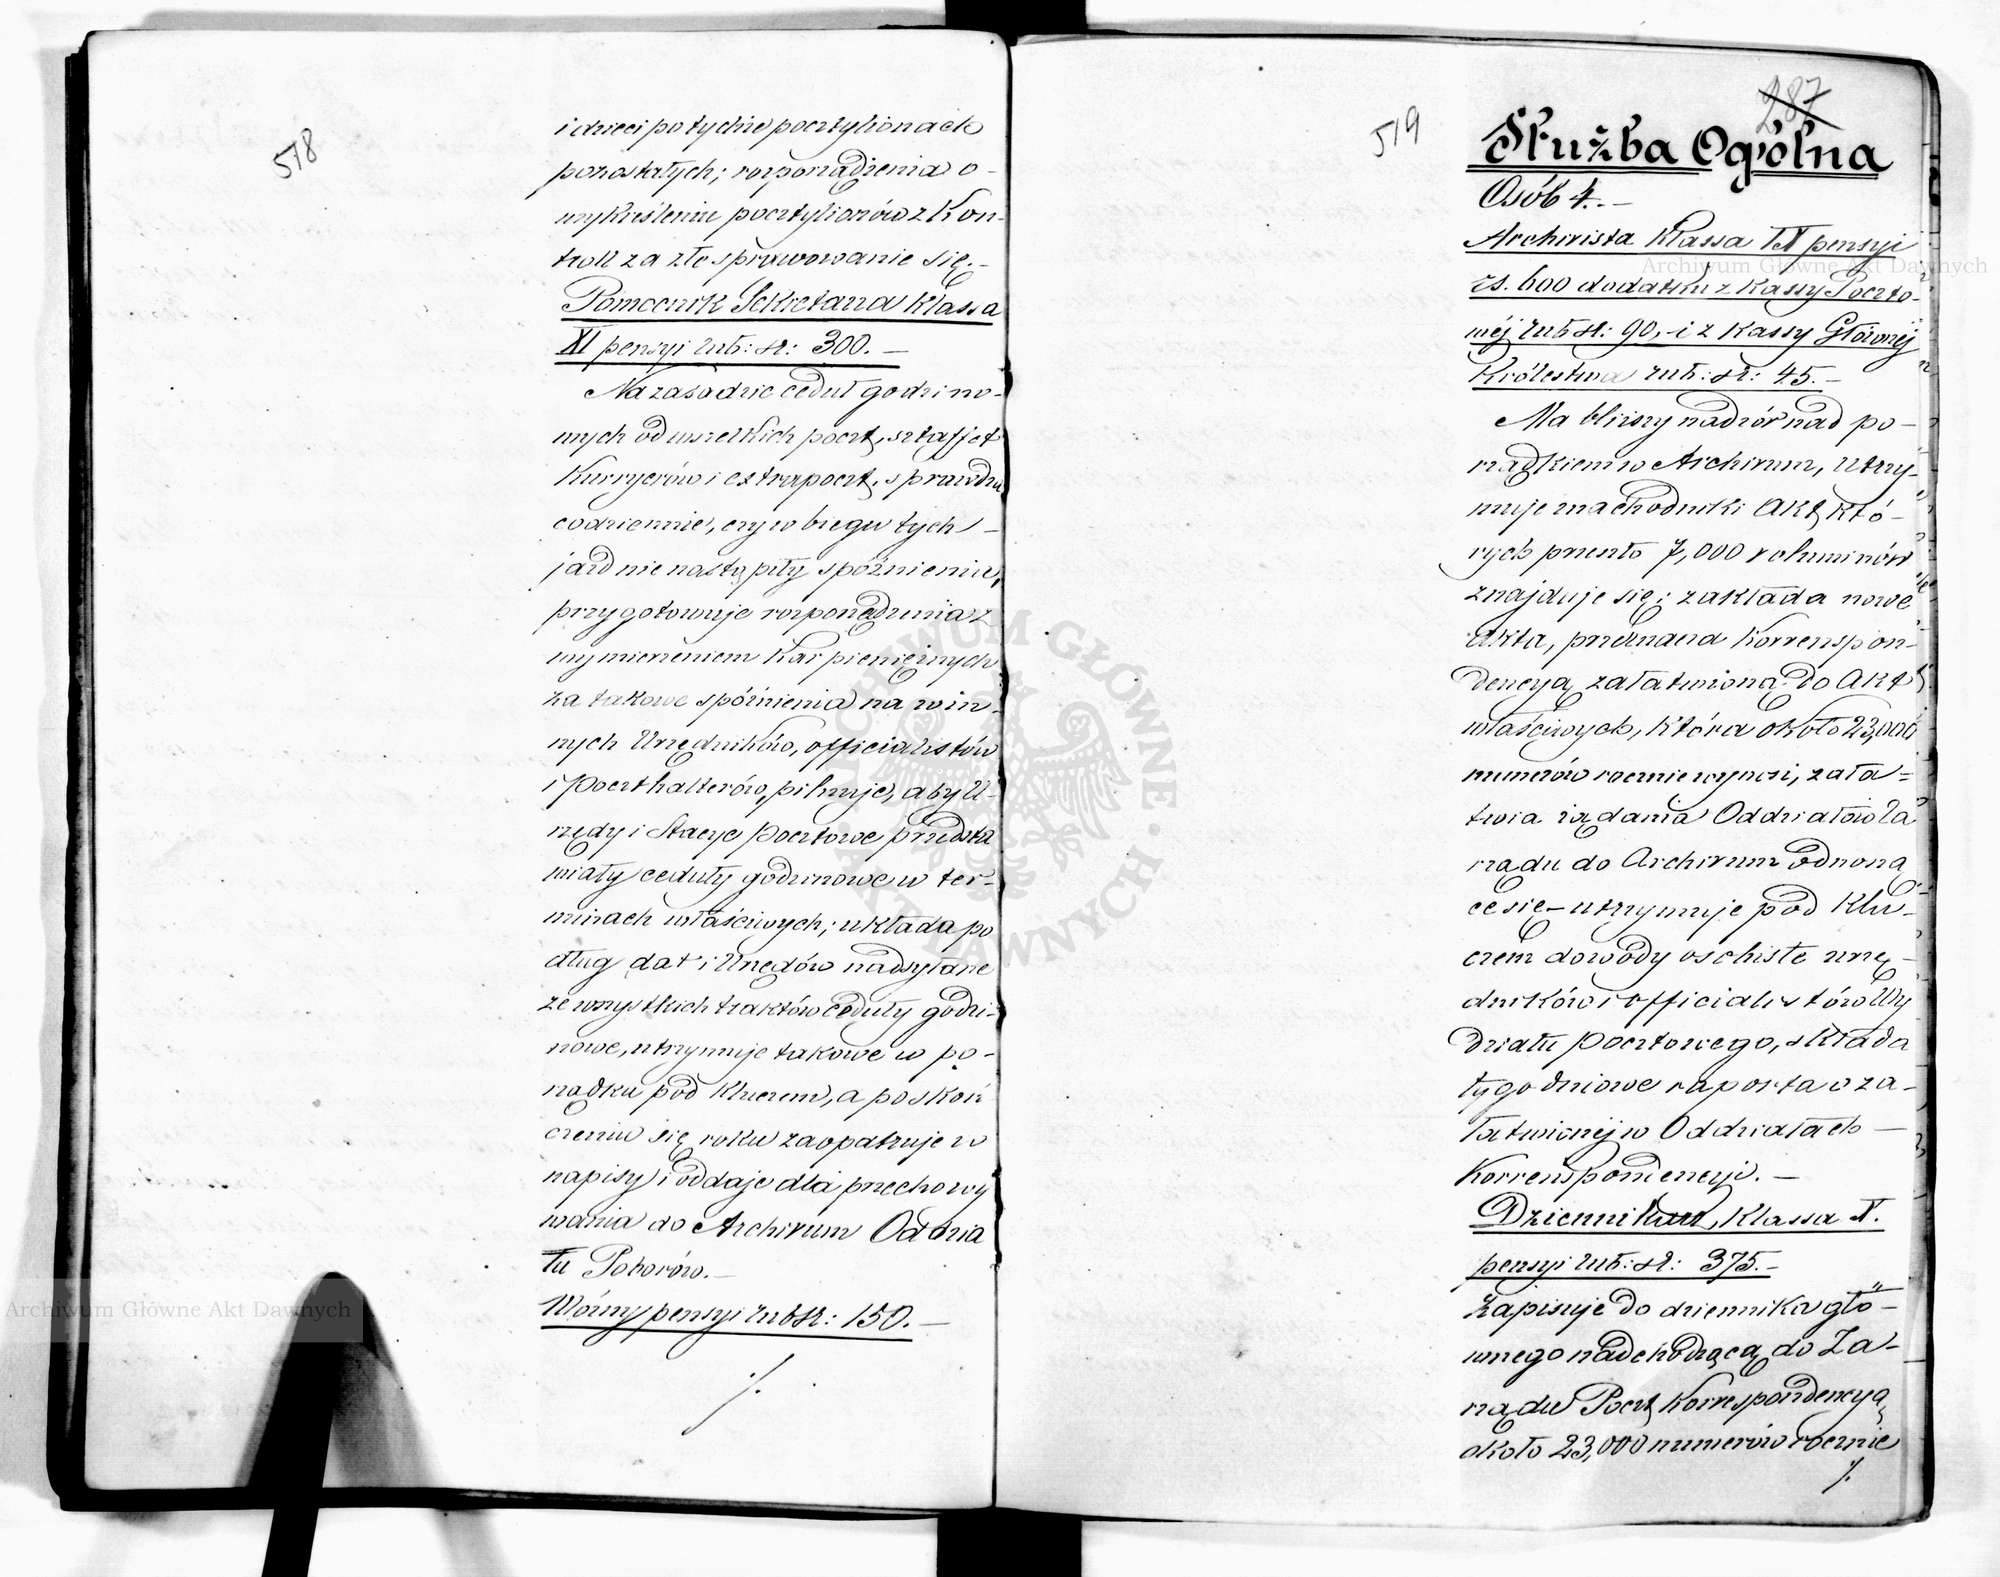 518
i dzieci po tychże pocztylionach
pozostałych; rozporządzenia o-
wykreślenie pocztylionów z Kon-
troll za złe sprawowanie się.-
Pomocnik Sekretarza Klassa
XI pensyi rub: sr: 300.-
Na zasadzie ceduł godzino-
wych od wszelkich poczt, sztaffet
Kurryerów i extrapoczt, sprawdza
codziennie, czy w biegu tych-
jazd nie nastąpiły spóźnienia,
przygotowuje rozporządzenia z
wymierzeniem Kar pieniężnych
za takowe spóźnienia na win-
nych Urzędników, officialistów
i Poczthalterów, pilnuje, aby U-
rzędy i Stacye pocztowe przedsta
wiały ceduły godzinowe w ter-
minach właściwych; układa po
dług dat i Urzędów nadsyłane
ze wszystkich traktów ceduły godzi-
nowe, utrzymuje takowe w po-
rządku pod Kluczem, a po skoń
czeniu się roku zaopatruje w
napisy i oddaje dla przechowy
wania do Archivum Oddzia
łu Poborów.-
Woźny pensyi rub sr: 150.-
/.
519
287
Służba Ogólna
Osób 4.-
Archivista Klassa IX pensyi
rs. 600 dodatku z Kassy Poczto-
wéj rub sr: 90,- i z Kassy Głównéj
Królestwa rub: sr: 45.-
Ma bliższy nadzór nad po-
rządkiem w Archivum, utrzy-
muje znachodniki Akt, któ-
rych przeszło 7,000 voluminów
znajduje się; zakłada nowe
akta, przeznacza Korrespon-
dencyą załatwioną do Akt
właściwych, która około 23,000
numerów rocznie wynosi, zała=
twia żądania Oddziałów Za
rządu do Archivum odnoszą
ce się- utrzymuje pod Klu-
czem dowody osobiste urzę-
dników i officialistów Wy
działu Pocztowego, składa
tygodniowe raporta o za-
łatwionéj w Oddziałach-
Korrespondencyi.-
Dziennikarz, Klassa X.
pensyi rub: sr: 375.-
Zapisuje do dziennika głó-
wnego nadchodzącą do Za-
rządu Poczt Korrespondencyą,
około 23,000 numerów rocznie
/.
Archiwum Główne Akt Dawnych
Archiwum Główne Akt Dawnych
ARCHIWUM GŁÓWNE · AKT DAWNYCH ·